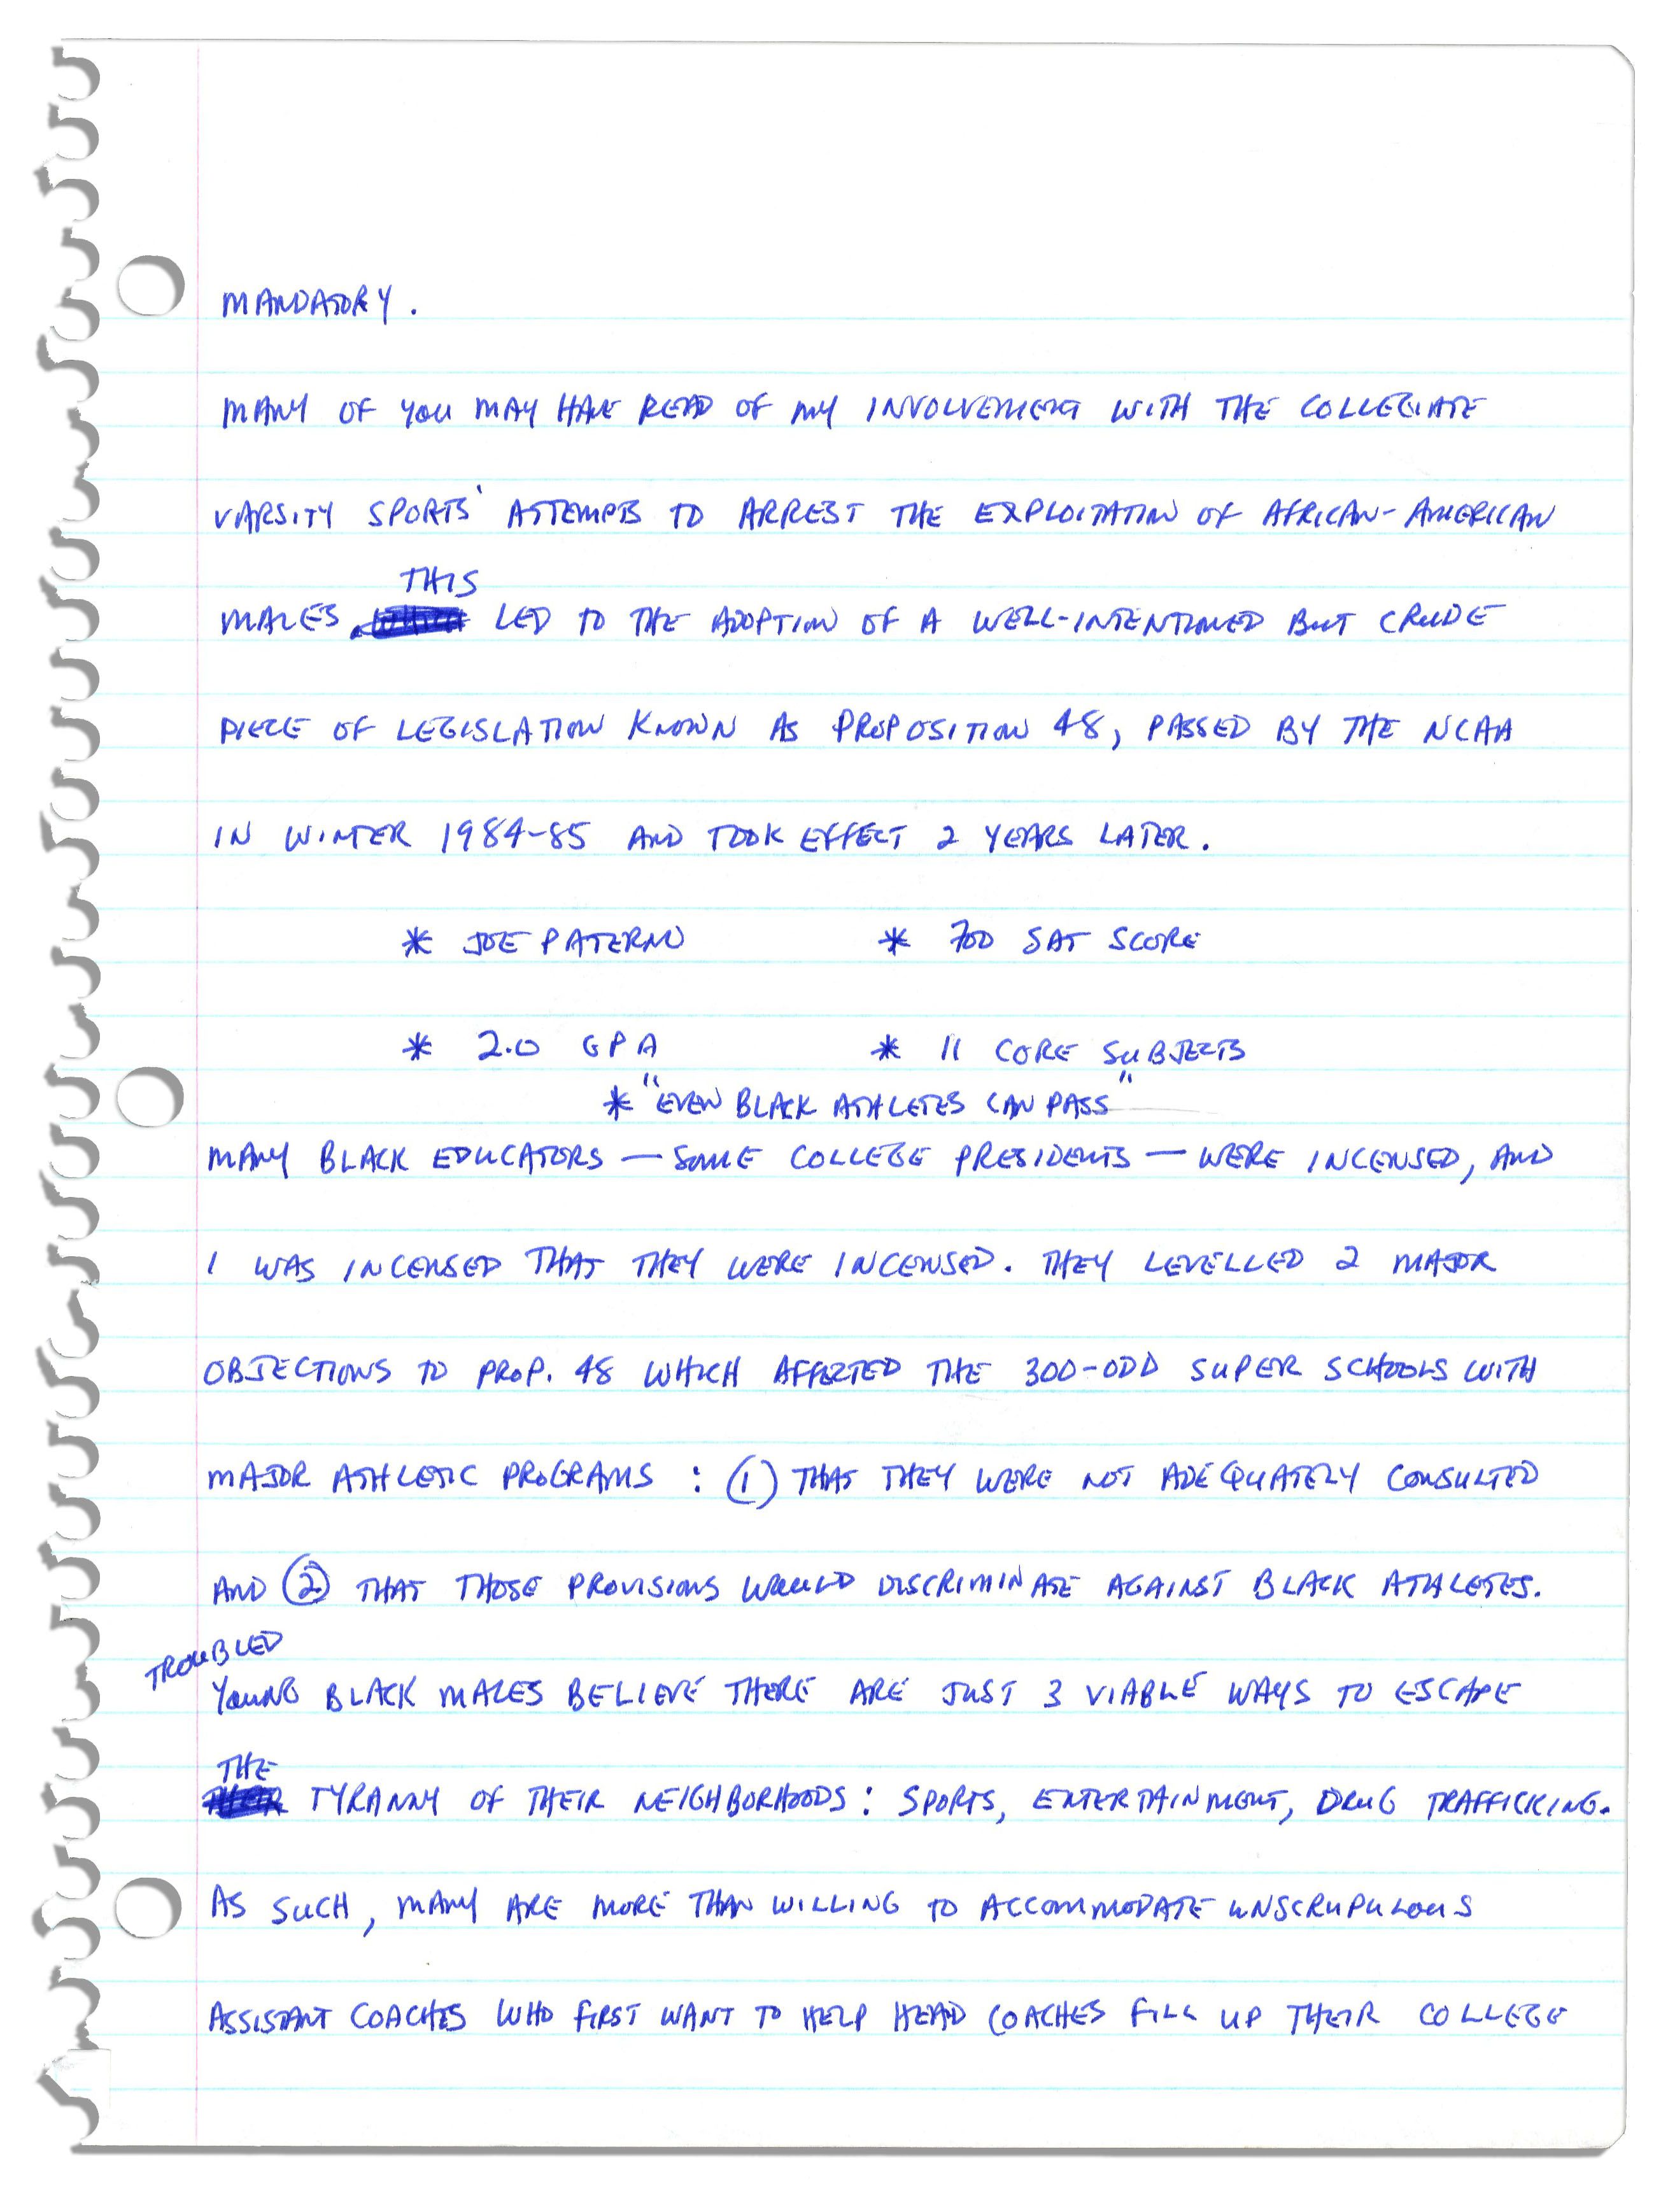 MANDATORY.
MANY OF YOU MAY HAVE READ OF MY INVOLVEMENT WITH THE COLLEGIATE
VARSITY SPORTS' ATTEMPTS TO ARREST THE EXPLOITATION OF AFRICAN-AMERICAN
THIS
MALES. LED TO THE ADOPTION OF A WELL-INTENTIONED BUT CRUDE
PIECE OF LEGISLATION KNOWN AS PROPOSITION 48, PASSED BY THE NCAA
IN WINTER 1984-85 AND TOOK EFFECT 2 YEARS LATER.
* JOE PATERNO * 700 SAT SCORE
* 2.0 GPA * 11 CORE SUBJECTS
* "EVEN BLACK ATHLETES CAN PASS"
MANY BLACK EDUCATORS — SOME COLLEGE PRESIDENTS — WERE INCENSED, AND
I WAS INCENSED THAT THEY WERE INCENSED. THEY LEVELLED 2 MAJOR
OBJECTIONS TO PROP. 48 WHICH AFFECTED THE 300-ODD SUPER SCHOOLS WITH
MAJOR ATHLETIC PROGRAMS : (1) THAT THEY WERE NOT ADEQUATELY CONSULTED
AND (2) THAT THOSE PROVISIONS WOULD DISCRIMINATE AGAINST BLACK ATHLETES.
TROUBLED
YOUNG BLACK MALES BELIEVE THERE ARE JUST 3 VIABLE WAYS TO ESCAPE
THE
TYRANNY OF THEIR NEIGHBORHOODS: SPORTS, ENTERTAINMENT, DRUG TRAFFICKING.
AS SUCH, MANY ARE MORE THAN WILLING TO ACCOMMODATE UNSCRUPULOUS
ASSISTANT COACHES WHO FIRST WANT TO HELP HEAD COACHES FILL UP THEIR COLLEGE